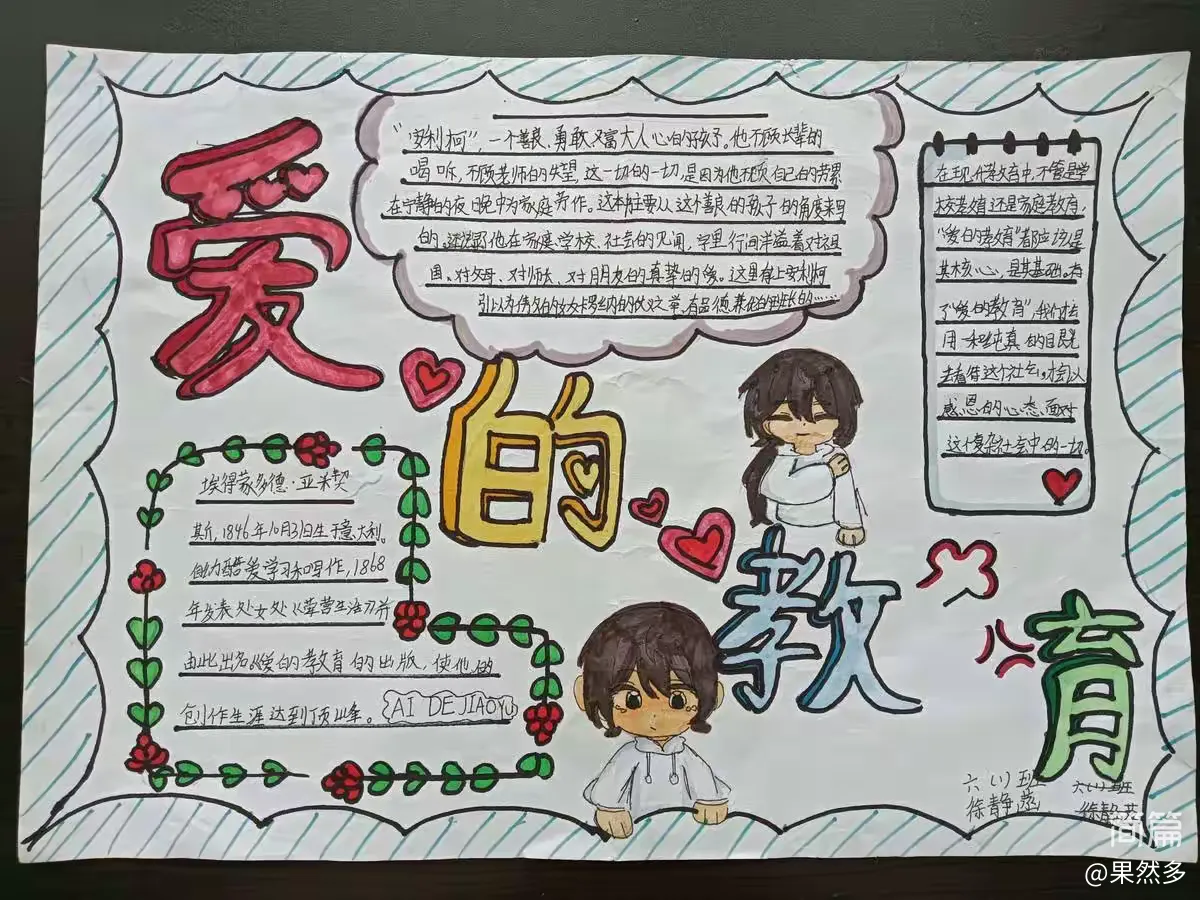 爱
的
教
育
“安利柯”，一个善良、勇敢又富大人心白的好孩子。他不顾长辈的
喝吩，不顾老师的失望，这一切的一切，是因为他不顾自己的劳累
在宁静的夜晚中为家庭劳作。这本书主要从这个善良的孩子的角度来写
的。述说了他在家庭、学校、社会的见闻，字里行间洋溢着对祖
国、对父母、对师友、对朋友的真挚的爱。这里有上安利柯
引以为傲的
在现代教育中，不管是学
校教育还是家庭教育，
“爱的教育”都应该是
其核心，是其基础。有
了“爱的教育”，我们才会
用一种纯真的目光
去看待这个社会，才会以
感恩的心态，面对
这个复杂社会中的一切。
埃得蒙多德·亚米契
斯，1846年10月31日生于意大利。
他酷爱学习和写作，1868
年发表处女处《军营生活》并
由此出名《爱的教育的出版，使他的
创作生涯达到顶峰。
AI DE JIAOYU
六(1)班
徐静
六(1)班
徐静
简篇
@果然多